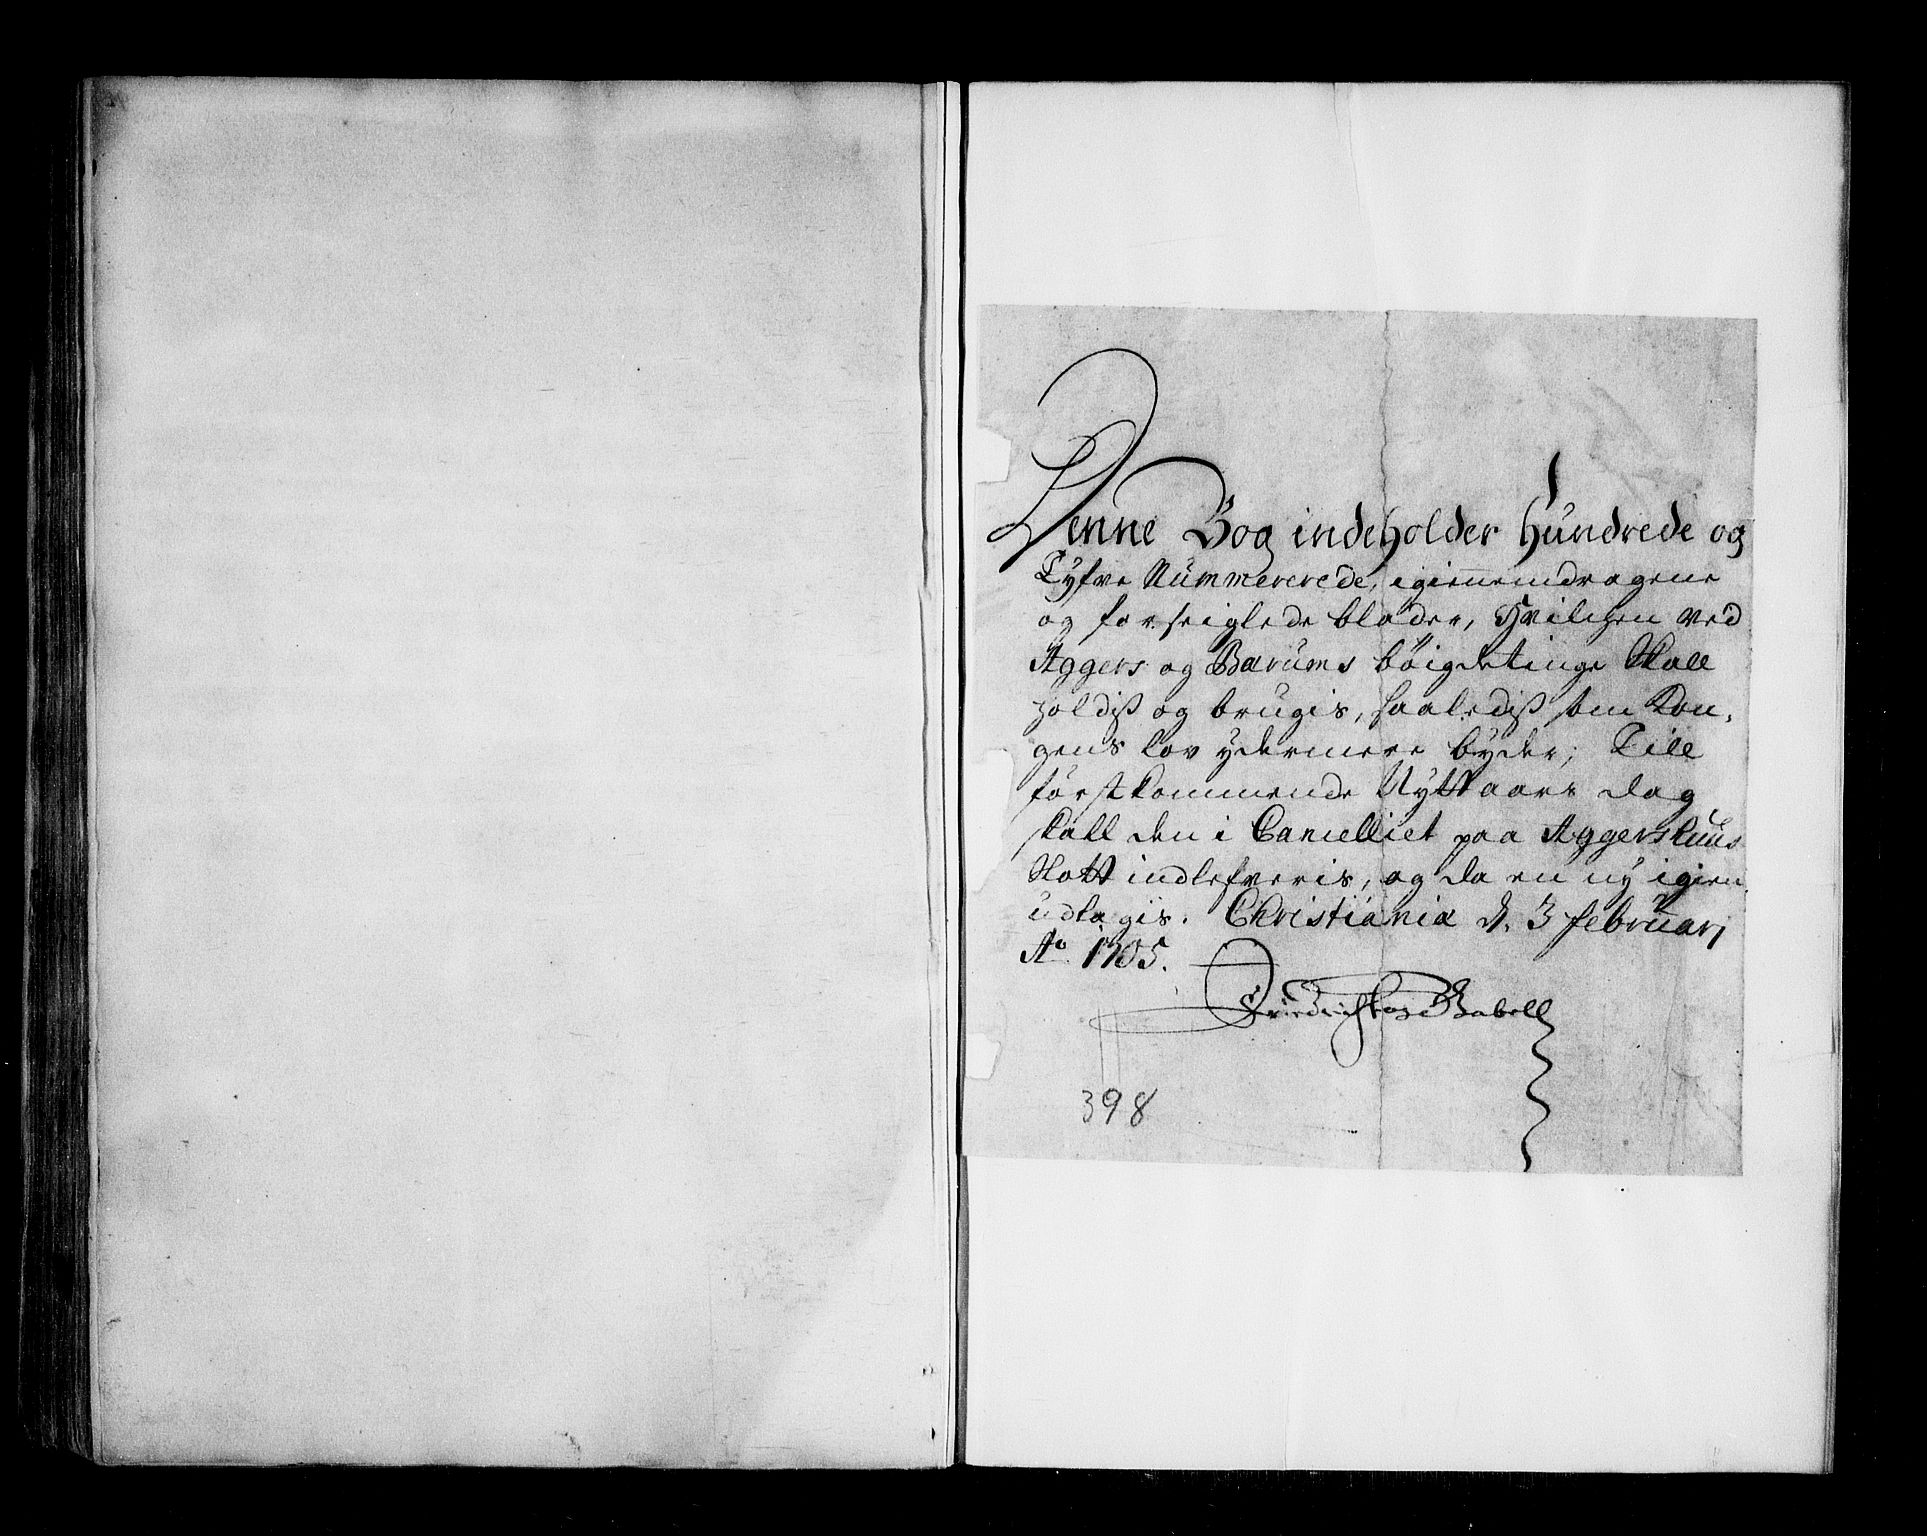 Denne Bog indeholder Hundrede og
Tyfve Nummererede, igiennemdragene
og forseiglede blader, Hvilchen ved
Aggers og Bærums böigdetinge Skall
holdiß og brugis, saalediß som Kon,
gens lov ydermere byder; Till
förstkommende Nytt aars dag
skall den i Cancelliet paa Aggershuus
Slott indlefveris, og da en ny igien
udtagis. Christiania d. 3 februarj
Ao 1705.
Friedrich Gabell
398